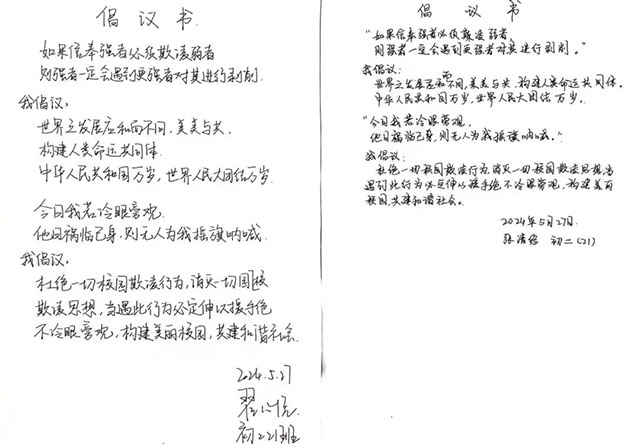 倡议书
如果信奉强者必须欺凌弱者
则强者一定会遇到更强者对其进行剥削.
我倡议:
世界之发展应和而不同,美美与共.
构建人类命运共同体.
中华人民共和国万岁,世界人民大团结万岁.
今日我若冷眼旁观.
他日祸临己身,则无人为我摇旗呐喊.
我倡议:
杜绝一切校园欺凌行为,消灭一切园校
欺凌思想,当遇此行为必定伸以援手绝
不冷眼旁观,构建美丽校园,共建和谐社会.
2024.5.27
初二21班
倡议书
"如果信奉强者必须欺凌弱者,
则强者一定会遇到更强者对其进行剥削."
我倡议:
世界之发展应和而不同,美美与共.构建人类命运共同体.
中华人民共和国万岁,世界人民大团结万岁.
"今日我若冷眼旁观.
他日祸临己身,则无人为我摇旗呐喊."
我倡议:
杜绝一切校园欺凌行为,消灭一切校园欺凌思想当
遇到此行为必定伸以援手绝不冷眼旁观,构建美丽
校园,共建和谐社会.
2024年5月27日.
张 初二(21)